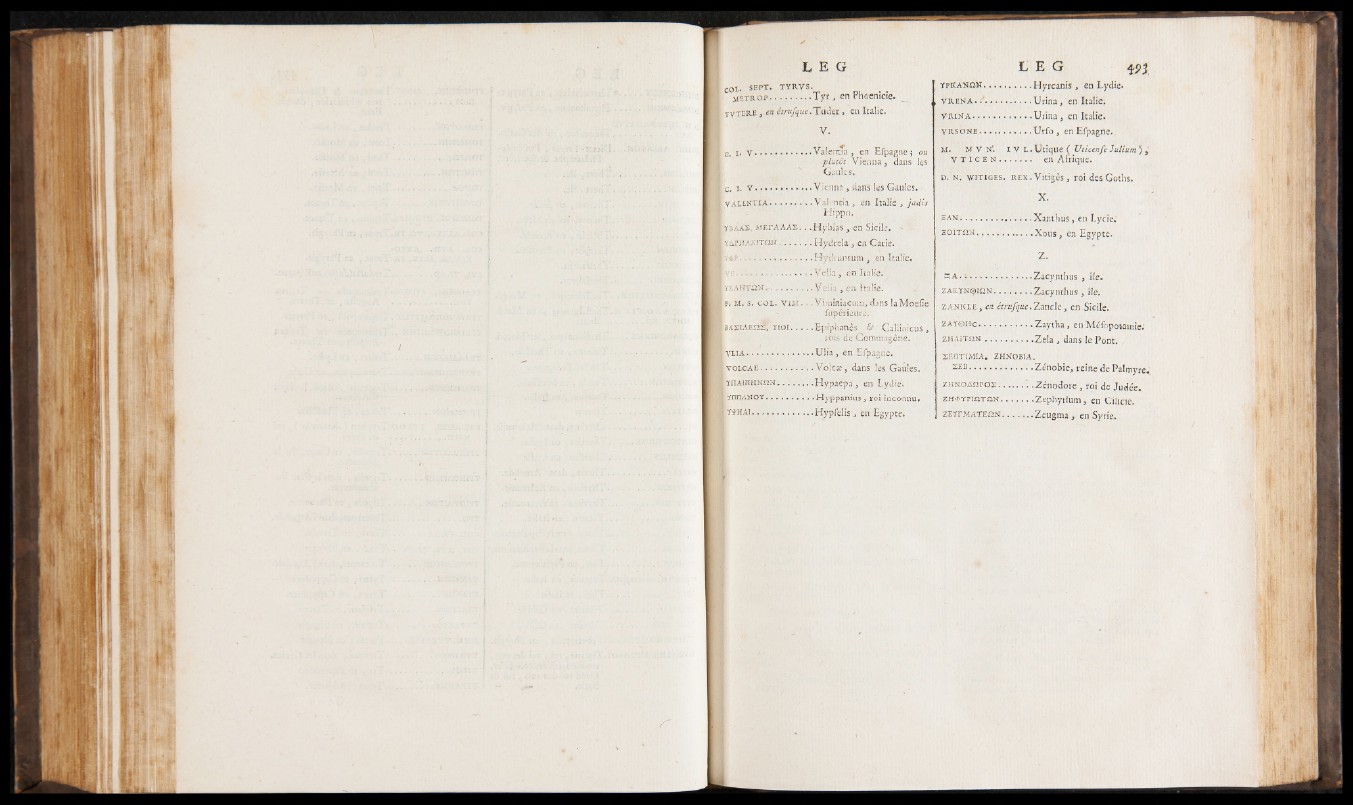 LEG
COL. SEPT. TYRVS.
METROP.........Tyr, en Phoenicie.
TVTERE, en étrusque.Tuder, en Italie.
V.
C. I. V............Valentia, en Eſpagne; ou
plutôt Vienna, dans les
Gaules.
C. I. V............Vienna, dans les Gaules.
VALENTIA.........Valentia, en Italie, jadis
Hippo.
ΥΒΛΑΣ. ΜΕΓΑΛΑΣ...Hyblas, en Sicile.
.......Hydrela, en Carie.
...............Hydruntum, en Italie.
...............Velia, en Italie.
.........Velia, en Italie.
P. M. S. COL. VIM...Viminiacum, dans la Moeſie
ſupérieure.
.....Epiphanès & Callinicus,
rois de Commagène.
VLIA..............Ulia, en Eſpagne.
VOLCAE...........Volcæ, dans les Gaules.
ΥΠΑΙΠΗΝΩΝ........Hypaepa, en Lydie.
ΥΠΠΑΝΟΥ..........Hyppanius, roi inconnu.
ΥΨΗΛΙ............Hypſelis, en Egypte.
LEG 493
ΥΡΚΑΝΩΝ..........Hyrcanis, en Lydie.
VRENA............Urina, en Italie.
VRINA............Urina, en Italie.
VRSONE...........Urſo, en Eſpagne.
M. MVN. IVL.Utique (Uticenſe Julium),
VTICEN....... en Afrique.
D. N. WITIGES. REX.Vitigès, roi des Goths.
X.
ΞΑΝ..............Xanthus, en Lycie.
ΞΟΙΤΩΝ...........Xous, en Egypte.
Z.
ΞΑ...............Zacynthus, île.
ΖΑΚΥΝΘΙΩΝ........Zacynthus, île.
ZANKLE, en étruſque.Zancle, en Sicile.
ΖΑΥΘΗC...........Zaytha, en Méſopotamie.
ΖΗΛΙΤΩΝ..........Zela, dans le Pont.
ΣΕΠΤΙΜΙΑ. ΖΗΝΟΒΙΑ.
ΣΕΒ.............Zénobie, reine de Palmyre.
ΖΗΝΟΔΩΡΟΣ........Zénodore, roi de Judée.
ΖΗΦΥΡΙΩΤΩΝ.......Zephyrium, en Cilicie.
ΖΕΥΓΜΑΤΕΩΝ.......Zeugma, en Syrie.